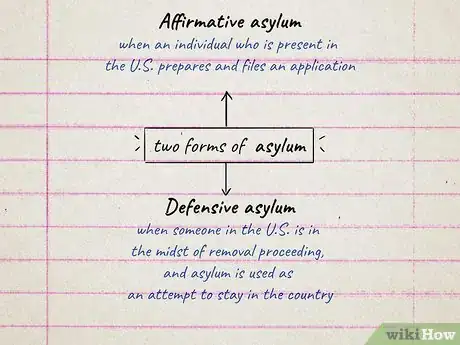 Affirmative asylum
when an individual who is present in
the U.S. prepares and files an application
two forms of asylum
Defensive asylum
when someone in the U.S. is in
the midst of removal proceeding,
and asylum is used as
an attempt to stay in the country
wikiHow